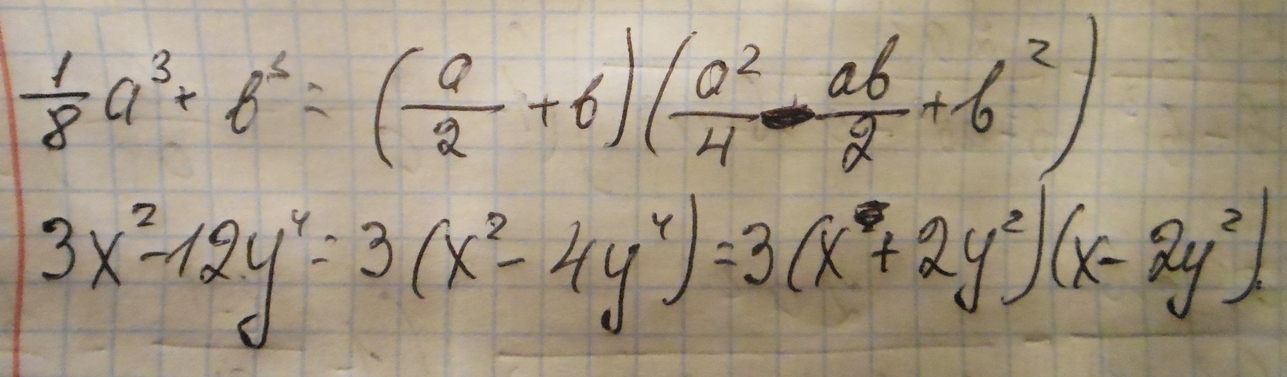 1/8 a³ + b³ = (a/2 + b)(a²/4 - ab/2 + b²)
3x² - 12y⁴ = 3(x² - 4y⁴) = 3(x + 2y²)(x - 2y²).